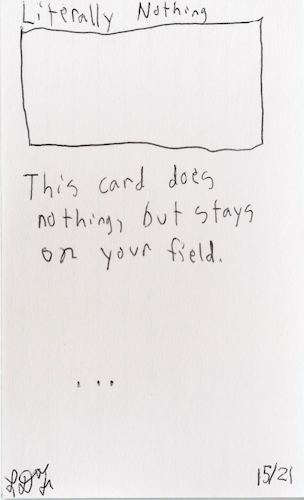 Literally Nothing
This card does
nothing, but stays
on your field.
...
15/21